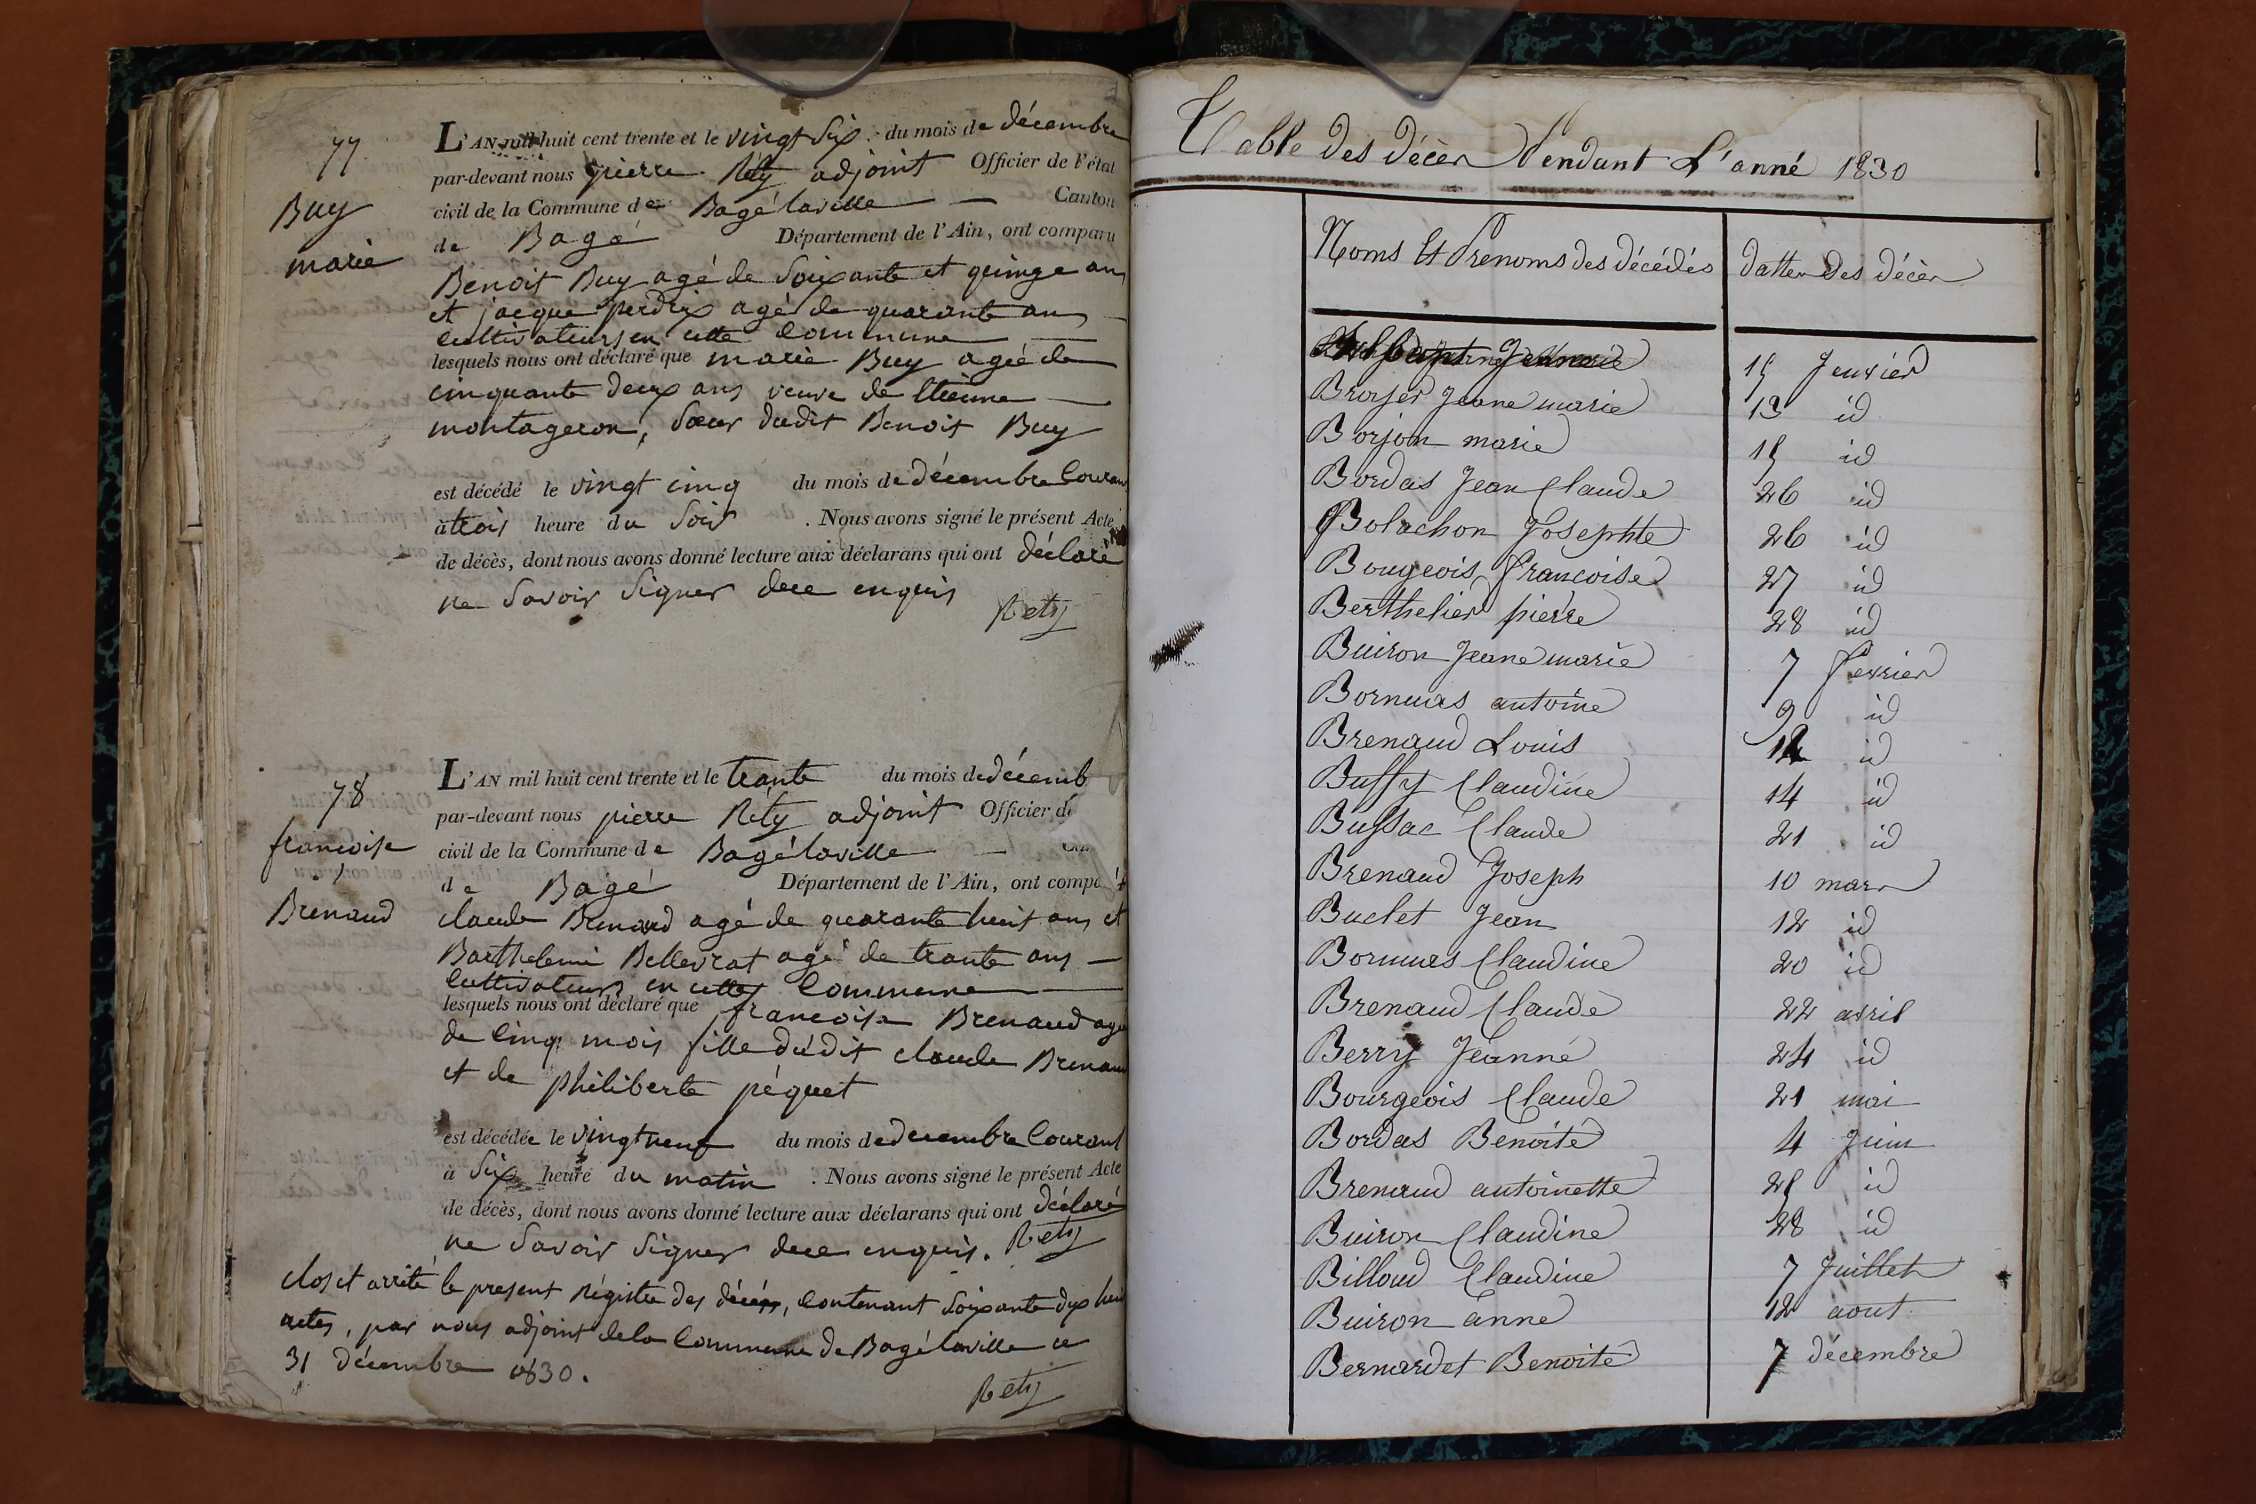 77
Buy
marie
L'AN mil huit cent trente et le vingt six du mois de décembre
par-devant nous pierre Réty adjoint Officier de l'état
civil de la Commune de Bagélaville — Canton
de Bagé Département de l'Ain, ont comparu
Benoit Buy agé de Soixante et quinze ans
et jacque perdrix agé de quarante ans
Cultivateurs en cette Commune
lesquels nous ont déclaré que marie Buy agée de
cinquante deux ans veuve de Etienne
montageron, Sœur dudit Benoit Buy
est décédé le vingt cinq du mois de décembre Courant
à trois heure du Soir . Nous avons signé le présent Acte
de décès, dont nous avons donné lecture aux déclarans qui ont déclaré
ne Savoir Signer de ce enquis
Rety
78
francoise
Brenaud
L'AN mil huit cent trente et le trante du mois de décemb
par-devant nous pierre Réty adjoint Officier de
civil de la Commune de Bagélaville —
de Bagé Département de l'Ain, ont compa
claude Brenaud agé de quarante huit ans et
Barthelemi Bellevrat agé de trante ans —
Cultivateurs en cette Commune
lesquels nous ont déclaré que francoise Brenaud agée
de Cinq mois fille dudit claude Brenaud
et de philiberte péquet
est décédée le vingt neuf du mois de decembre Courant
à Six heure du matin . Nous avons signé le présent Acte
de décès, dont nous avons donné lecture aux déclarans qui ont déclaré
ne Savoir Signer de ce enquis. Rety
clos et arrêté le present Régistre des décés, Contenant Soixante dix huit
actes, par nous adjoint de la Commune de Bagélaville ce
31 décembre 1830.
Rety
Table des décès Pendant L'anné 1830
Noms Et Prenoms des décédés dattes des décès
15 Janvier
Broyer Jeane marie 13 id
Borjon marie 15 id
Bordas Jean Claude 26 id
Bolachon Josephte 26 id
Bougeois francoise 27 id
Berthelier pierre 28 id
Buiron Jeane marie 7 fevrier
Bornuas antoine 9 id
Brenaud Louis 12 id
Buffy Claudine 14 id
Bussac Claude 21 id
Brenaud Joseph 10 mars
Buclet Jean 12 id
Bornuas Claudine 20 id
Brenaud Claude 22 avril
Berry Jeanne 24 id
Bourgeois Claude 21 mai
Bordas Benoite 4 Juin
Brenaud antoinette 25 id
Buiron Claudine 28 id
Billoud Claudine 7 Juillet
Buiron anne 12 aout
Bernardet Benoite 7 décembre